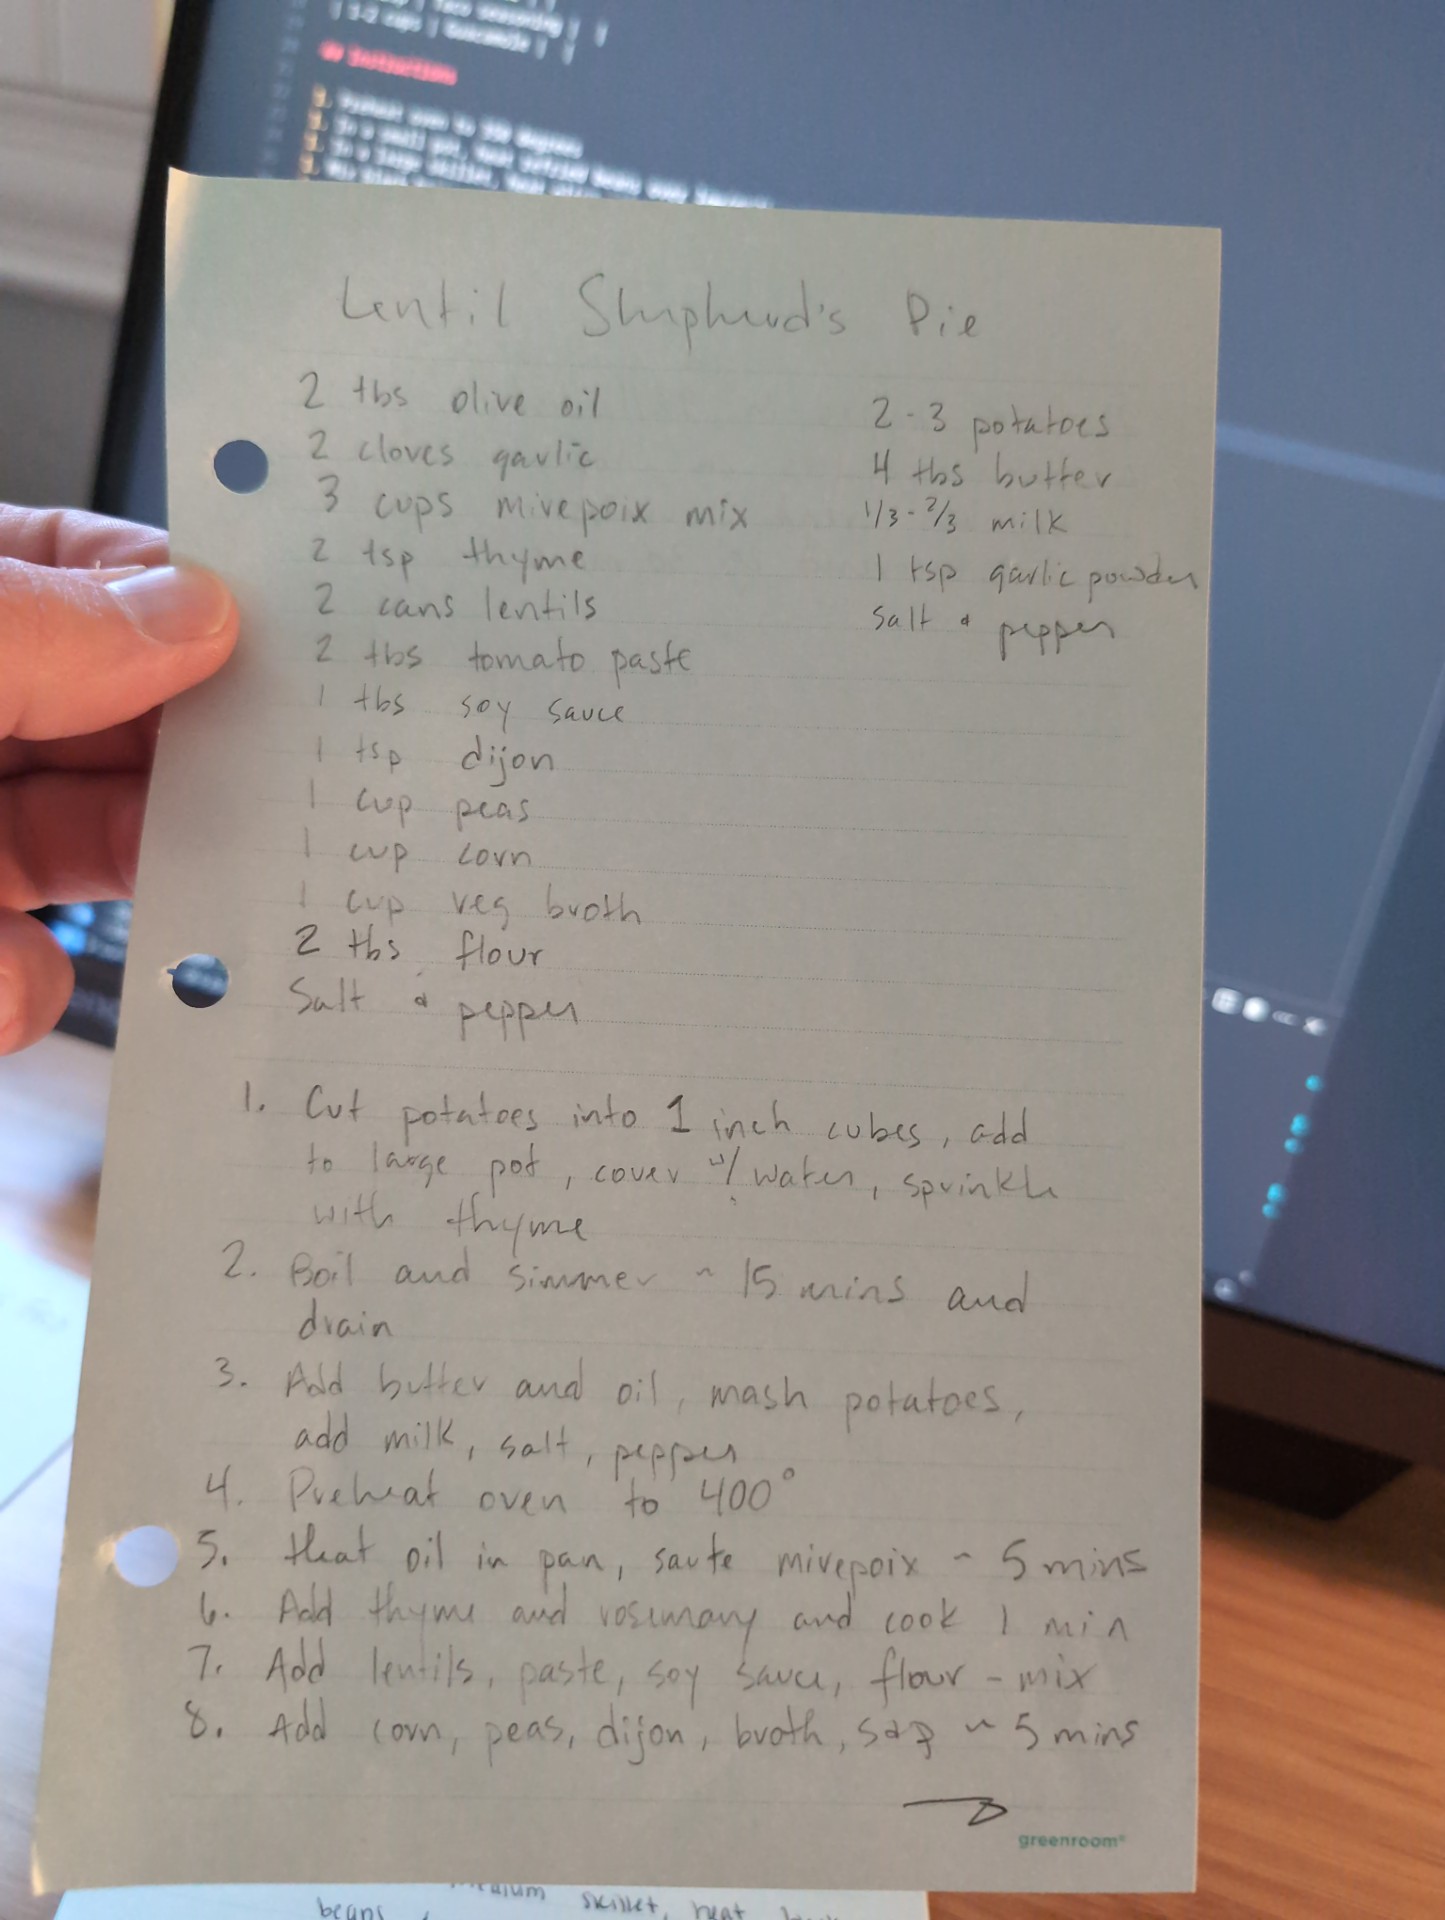 | Taco seasoning | |
| 1-2 cups | Guacamole | |
## Instructions
1. Preheat oven to 350 degrees
Lentil Shepherd's Pie
2 tbs olive oil
2 cloves garlic
3 cups mirepoix mix
2 tsp thyme
2 cans lentils
2 tbs tomato paste
1 tbs soy sauce
1 tsp dijon
1 cup peas
1 cup corn
1 cup veg broth
2 tbs flour
Salt & pepper
2-3 potatoes
4 tbs butter
1/3-2/3 milk
1 tsp garlic powder
Salt & pepper
1. Cut potatoes into 1 inch cubes, add
to large pot, cover w/ water, sprinkle
with thyme
2. Boil and simmer ~ 15 mins and
drain
3. Add butter and oil, mash potatoes,
add milk, salt, pepper
4. Preheat oven to 400°
5. Heat oil in pan, saute mirepoix ~ 5 mins
6. Add thyme and rosemary and cook 1 min
7. Add lentils, paste, soy sauce, flour - mix
8. Add corn, peas, dijon, broth, s&p ~ 5 mins
greenroom®
medium skillet, heat
beans